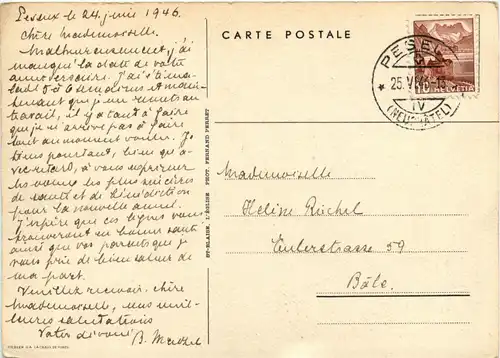 Peseux le 24 juin 1946.
Chère Mademoiselle.
Malheureusement j'ai
manqué la date de votre
anniversaire. J'ai s'
semaines et main-
tenant que je me remets au
travail, il y a tant à faire
que je n'arrive pas à faire
tout au moment voulu. Je
tiens pourtant, bien qu'à-
vec retard, à vous exprimer
les voeux les plus sincères
de santé et de bénédiction
pour la nouvelle année.
J'espère que ces lignes vous
trouveront en bonne santé
ainsi que vos parents que je
vous prie de bien saluer de
ma part.
Veuillez recevoir, chère
Mademoiselle, mes meil-
leures salutations
Votre dévoué B.
PHOTO. FERNAND PERRET
ST-BLAISE, L'ÉGLISE
CARTE POSTALE
PESEUX
25.VI.46-13
IV
(NEUCHÂTEL)
10 HELVETIA
Mademoiselle
Hélène Rüchel
Eulerstrasse 59
Bâle.